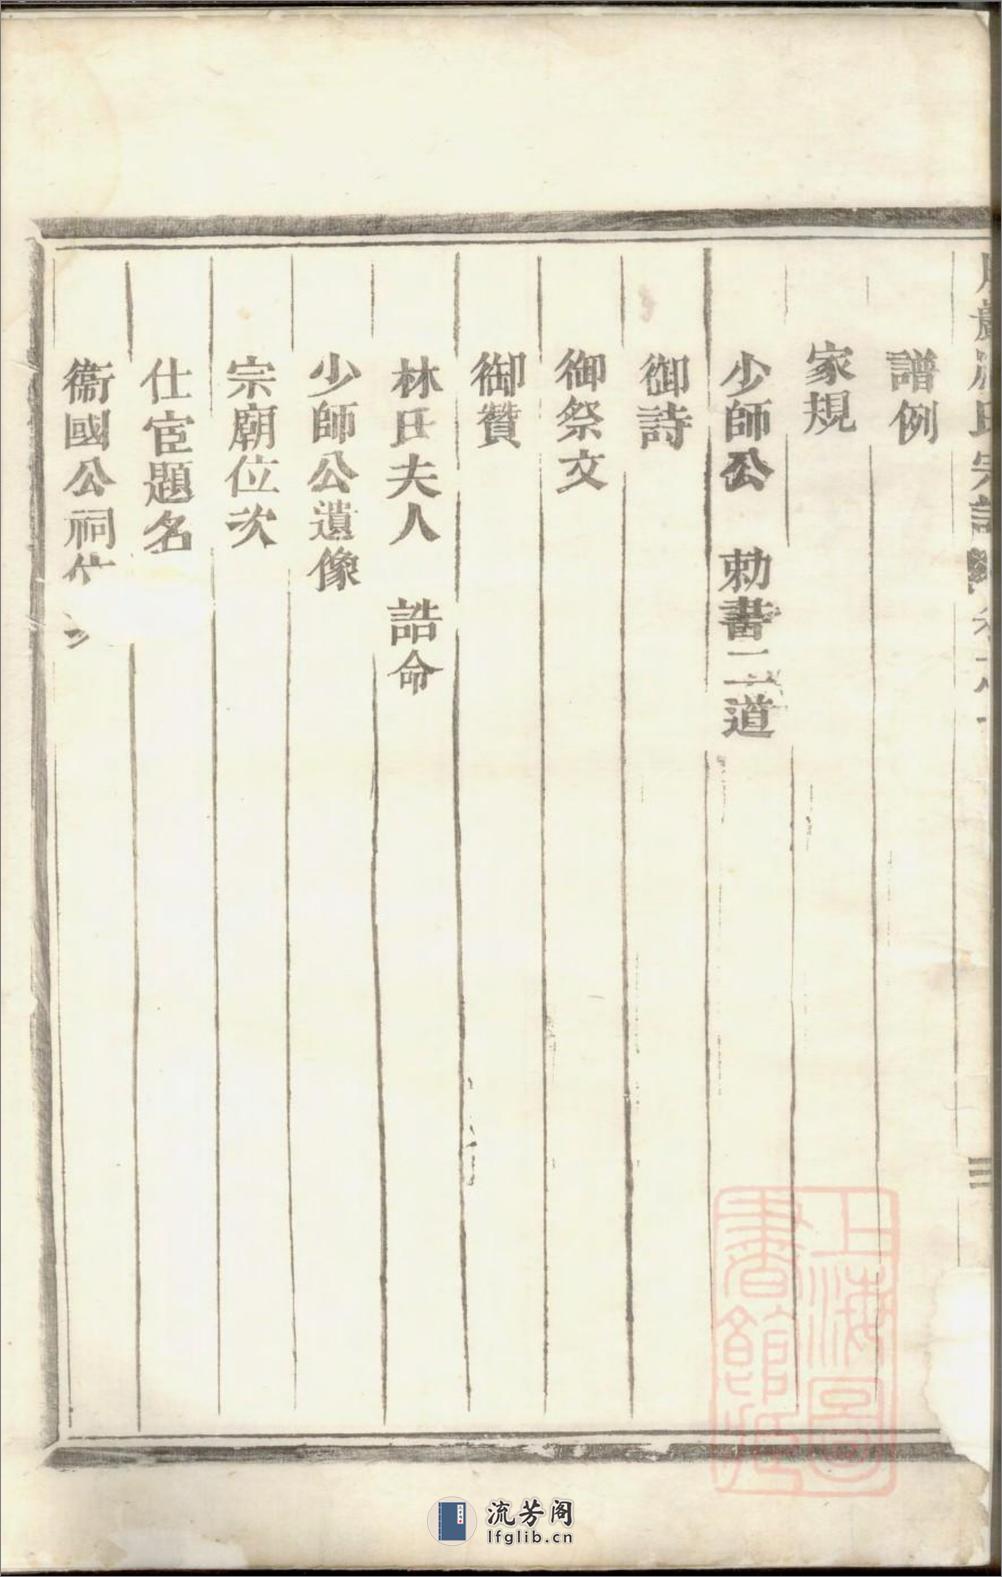 氏宗譜
譜例
家規
少師公　勅書二道
御詩
御祭文
御贊
林氏夫人　誥命
少師公遺像
宗廟位次
仕宦題名
衞國公祠
上海圖書館藏
流芳阁
lfglib.cn